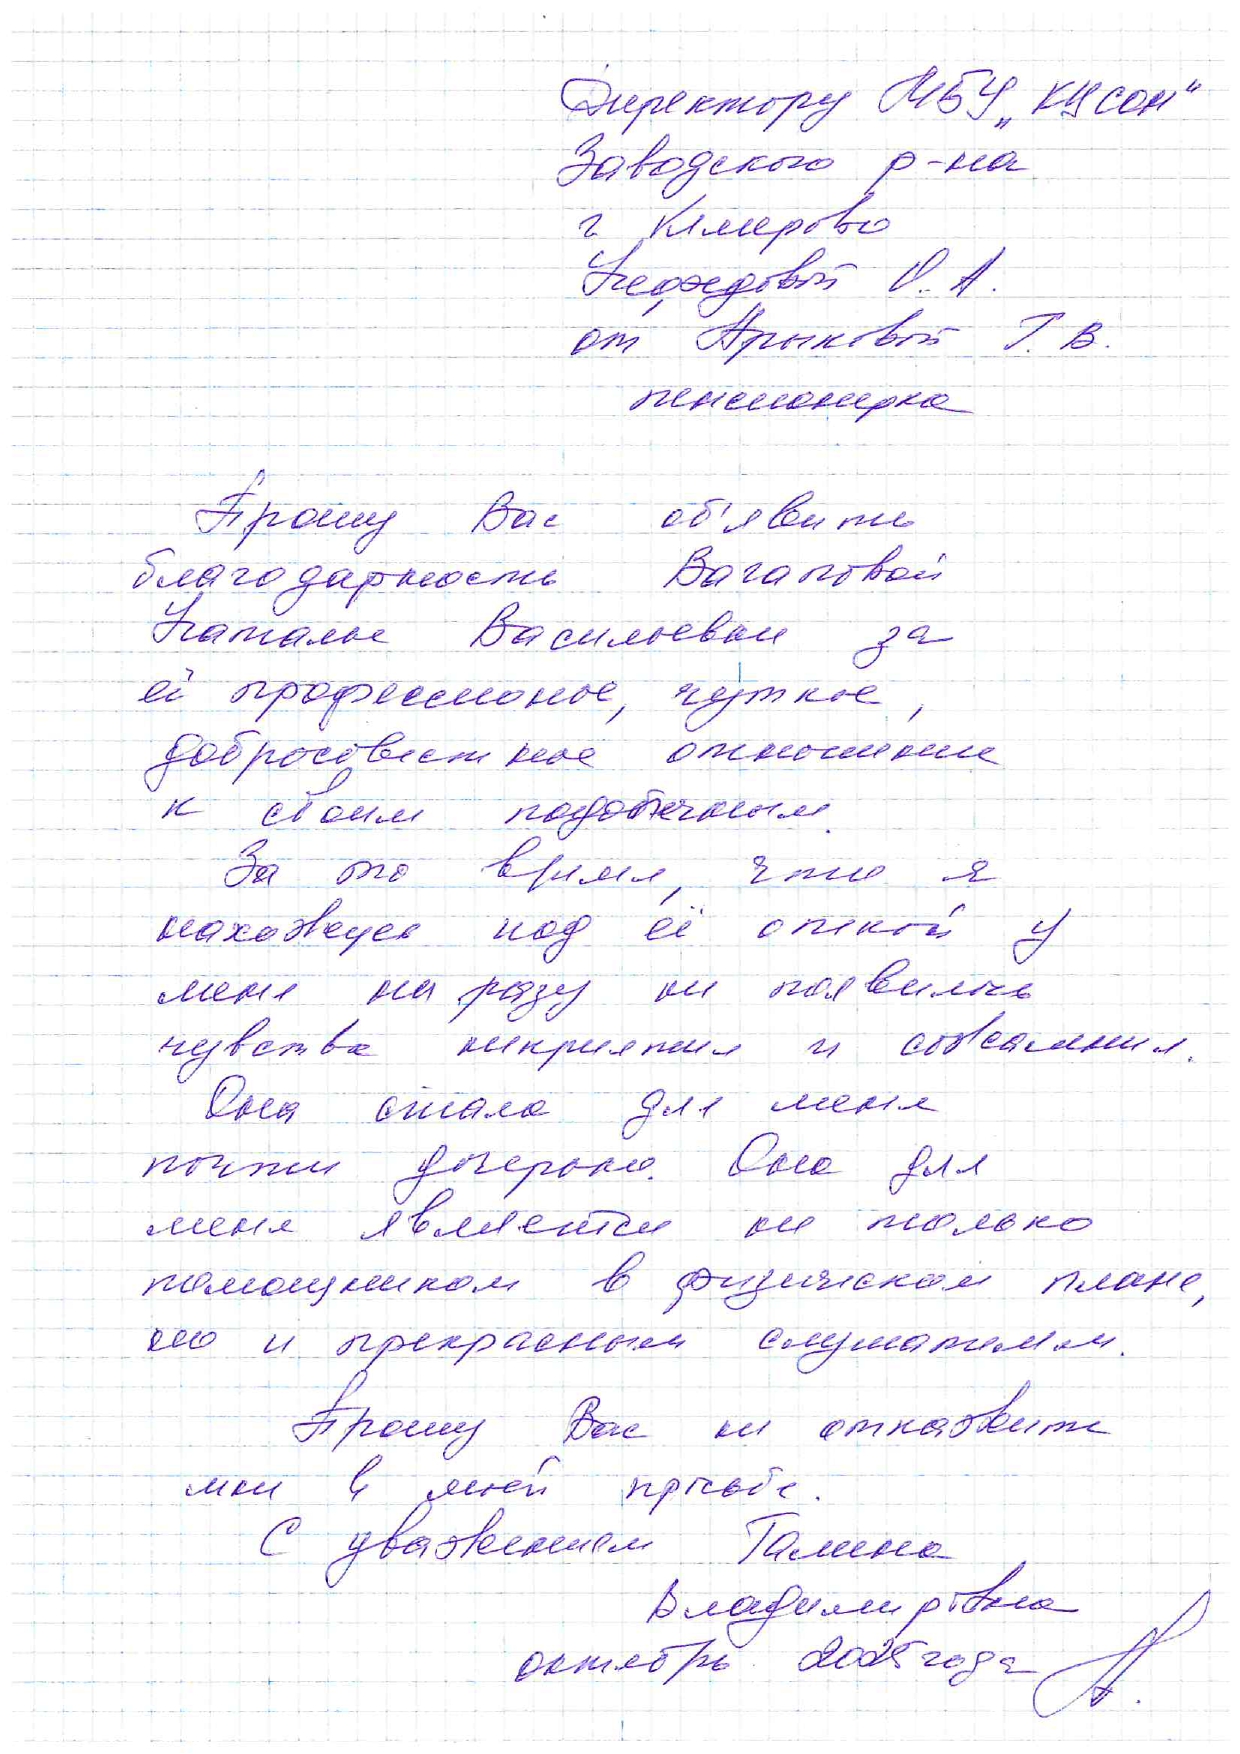 Директору МБУ „КЦСОН"
Заводского р-на
г Кемерово
Нефедовой О. А.
от Ярыковой Г. В.
пенсионерка
Прошу Вас об'явить
благодарность Вагаповой
Наталье Васильевне за
её профессионое, чуткое,
добросовестное отношение
к своим подопечным.
За то время, что я
нахожусь под её опекой у
меня ни разу не появилось
чувства неприятия и сожаления.
Она стала для меня
почти дочерью. Она для
меня является не только
помощником в физическом плане,
но и прекрасным слушателем.
Прошу Вас не откажите
мне в моей просьбе.
С уважением Галина
Владимировна
октябрь 2025 года